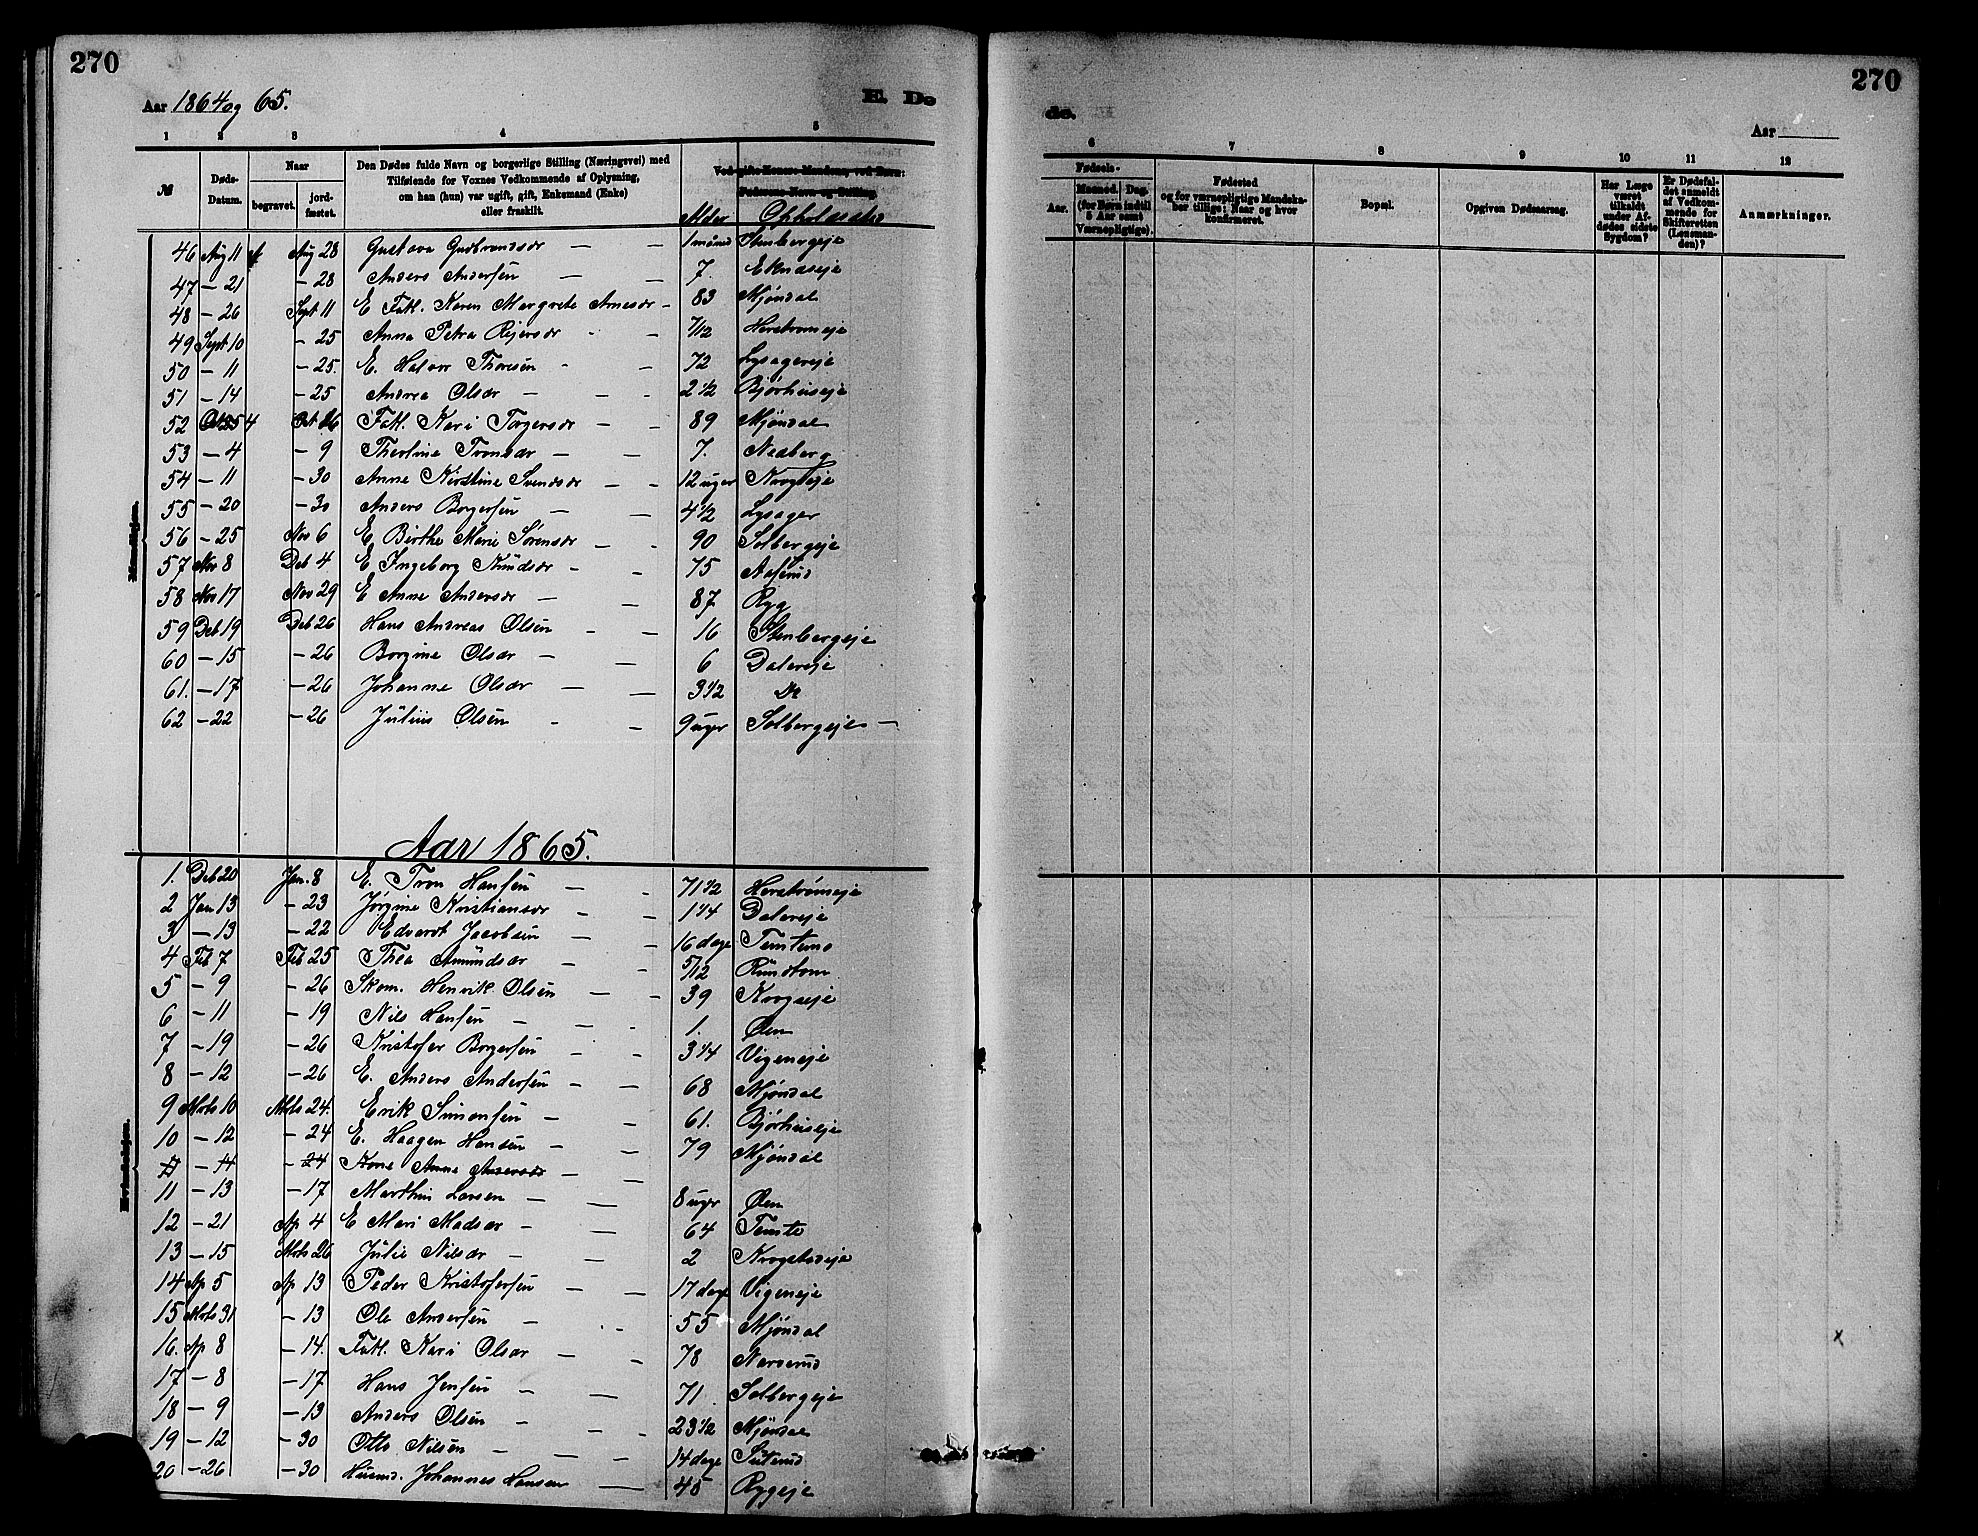 270
270
Aar 1864 og 65.
E. Dø
de.
Aar
1 2 3 4 5
6 7 8 9 10 11 12
№
Døds-Datum.
Naar
begravet.
jordfæstet.
Den Dødes fulde Navn og borgerlige Stilling (Næringsvei) med Tilføiende for Voxnes Vedkommende af Oplysning, om han (hun) var ugift, gift, Enkemand (Enke) eller fraskilt.
Ved gifte Koner: Mandens, ved Børn: Faderens Navn og Stilling.
Alder
Opholdssted
Fødsels-
Aar.
Maaned. Dag. (for Børn indtil 5 Aar samt Værnepligtige).
Fødested og for værnepligtige Mandskaber tillige: Naar og hvor konfirmeret.
Bopæl.
Opgiven Dødsaarsag.
Har Læge været tilkaldt under Afdødes sidste Sygdom?
Er Dødsfaldet anmeldt af Vedkommende for Skifteretten (Lensmanden)?
Anmærkninger.
Mandkjøn.
46 Aug 11 Aug 28 Gustava Gudbrandsdr — — 1 måned Stenbergeje
47 — 21 — 28 Anders Andersen — — 7. Eknæseje
48 — 26 Sept 11 E Fatl. Karen Margrete Arnesdr — 83 Mjøndal
49 Sept 10 — 25 Anna Petra Rejersdr — 7/12 Herstrømeje
50 — 11 — 25. E. Halvor Thoresen — 72 Lysagereje
51 — 14 — 25 Andrea Olsdr — — 2 1/2 Bjørhuseje
52 4 Fatl. Kari Torgersdr — — 89 Mjøndal
53 — 4 — 9 Thorine Tronsdr — — 7. Nedberg
54 — 11 — 30 Anne Kirstine Svendsdr — — 12 uger
55 — 20 — 30 Anders Borgersen — — 4 1/2 Lysager
56 — 25 Nov 6 E Birthe Marie Sørensdr — — 90 Solbergeje
57 Nov 8 Deb 4 E Ingeborg Knudsdr — — 75 Aaserud
58 Nov 17 Nov 29 E Anne Andersdr — — 87 Ryg
59 Deb 19 Deb 26 Hans Andreas Olsen — — 16 Stenbergeje
60 — 15 — 26 Borgine Olsdr — — 6 Dalereje
61. — 17 — 26 Johanne Olsdr — — 3 1/2 Do
62 — 22 — 26 Julius Olsen — — 9 uger Solbergeje —
Aar 1865.
1. Deb 20 Jan. 8 E. Tron Hansen — — 71 1/2 Herstrømseje
2 Jan 13 — 23 Jørgine Kristiansdr — — 1 1/4 Dalereje
3 — 13 — 22 Edvardt Jacobsen — — 16 dage
4 Feb 7 Feb 25 Thea Amundsdr — — 5/12 Rundtom
5 — 9 — 26 Skom. Henrik Olsen — — 39 Krogseje
6 — 11 — 19 Nils Hansen — — 1. Øen
7 — 19 — 26 Kristofer Borgersen — — 3 1/4 Vigeneje
8 — 12 — 26 E. Anders Andersen — — 68 Mjøndal
9 Mrts 10 Mrts 24. Erik Simensen — 61. Bjørhuseje
10 — 12 — 24 E. Haagen Hansen — — 79 Mjøndal
— 14 — 24 Kone Anne Andersdr —
Kvindekjøn.
11 — 13 — 17 Marthin Larsen — — 8 uger Øen
12 — 21 Ap 4 E Mari Madsdr — — 64 Temte
13 — 15 Mrts 26 Julie Nilsdr — — 2 Krogstadeje
14 Ap 5 Ap 13 Peder Kristofersen — — 17 dage Vigeneje
15 Mrts 31 — 13 Ole Andersen — — 55 Mjøndal
16. Ap 8 — 14. Fatl. Kari Olsdr — — 78 Narverud
17 — 8 — 17 Hans Jensen — — 71 Solbergeje
18 — 9 — 13 Anders Olsen — — 23 1/2 Mjøndal
19 — 12 — 30 Otto Nilsen — — 14 dage
20 — 26 — 30 Husmd. Johannes Hansen — 45 Rygeje
x